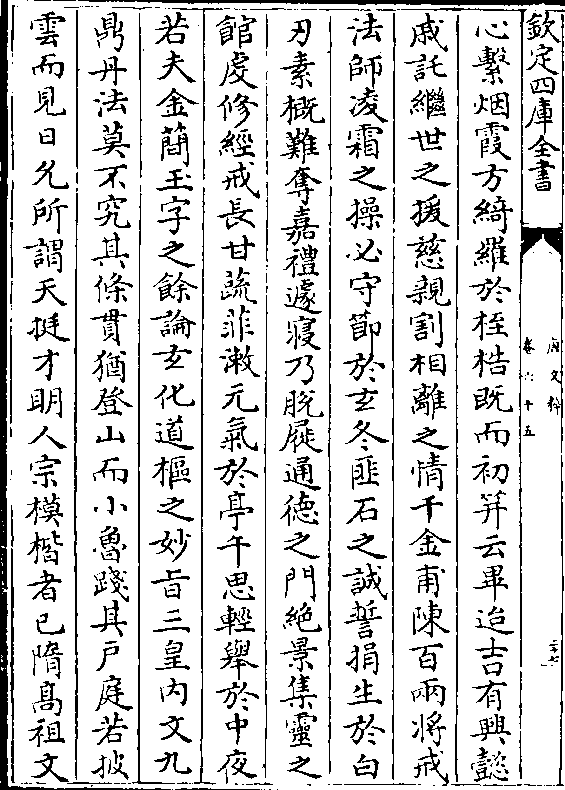 欽定四庫全書
唐文粹
卷六十五
心繫烟霞方綺羅於桎梏既而初筓云畢迨吉有興懿
戚託繼世之援慈親割相離之情千金甫陳百兩將戒
法師凌霜之操必守節於玄冬匪石之誠誓捐生於白
刃素概難奪嘉禮遽寢乃脫屣通德之門絶景集靈之
館虔修經戒長甘蔬菲漱元氣於亭午思輕舉於中夜
若夫金簡玉字之餘論玄化道樞之妙旨三皇内文九
鼎丹法莫不究其條貫猶登山而小魯踐其戶庭若披
雲而見日允所謂天挺才明人宗模楷者已隋髙祖文